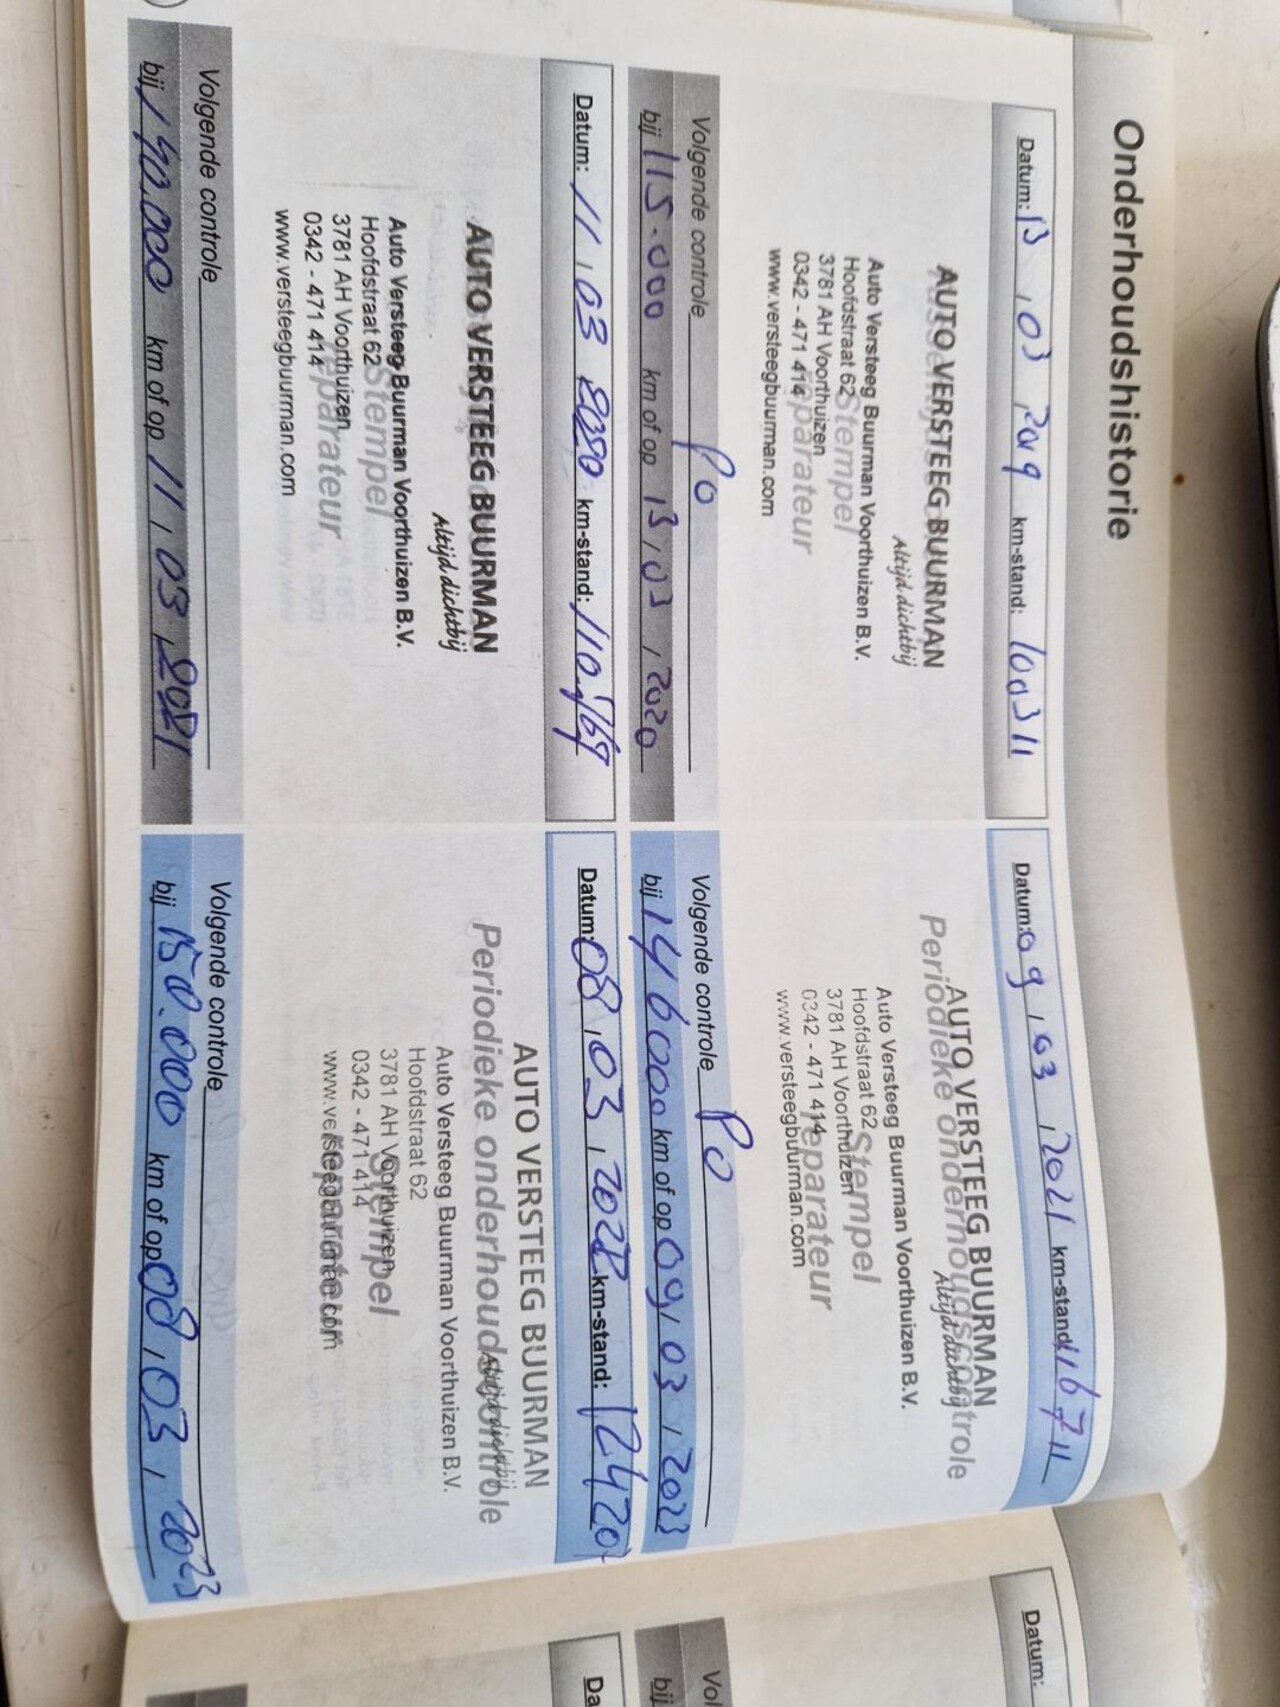 Onderhoudshistorie
Datum: 13 , 03 , 2019 km-stand: 100311
AUTO VERSTEEG BUURMAN
Altijd dichtbij
Auto Versteeg Buurman Voorthuizen B.V.
Hoofdstraat 62
Stempel
3781 AH Voorthuizen
reparateur
0342 - 471 414
www.versteegbuurman.com
Volgende controle PO
bij 115.000 km of op 13 , 03 , 2020
Datum: 11 , 03 km-stand:
AUTO VERSTEEG BUURMAN
Altijd dichtbij
Auto Versteeg Buurman Voorthuizen B.V.
Hoofdstraat 62
Stempel
3781 AH Voorthuizen
reparateur
0342 - 471 414
www.versteegbuurman.com
Volgende controle
bij 140.000 km of op 11 , 03 , 2021
Datum: 09 , 03 , 2021 km-stand: 116711
AUTO VERSTEEG BUURMAN
Periodieke onderhoudscontrole
Altijd dichtbij
Auto Versteeg Buurman Voorthuizen B.V.
Hoofdstraat 62
Stempel
3781 AH Voorthuizen
reparateur
0342 - 471 414
www.versteegbuurman.com
Volgende controle PO
bij 146000 km of op 09 , 03 , 2023
Datum: 08 , 03 , 2022 km-stand: 124201
AUTO VERSTEEG BUURMAN
Periodieke onderhoudscontrole
Altijd dichtbij
Auto Versteeg Buurman Voorthuizen B.V.
Hoofdstraat 62
3781 AH Voorthuizen
Stempel
0342 - 471 414
reparateur
www.versteegbuurman.com
Volgende controle
bij 150.000 km of op 08 , 03 , 2023
Datum:
Vol
bij
Da